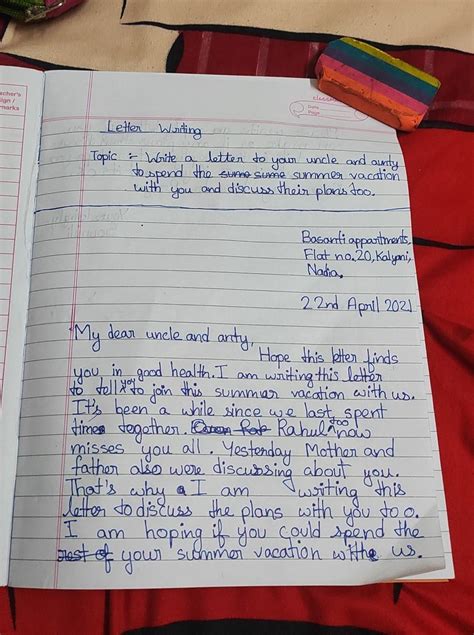 Teacher's
Sign /
Remarks
classmate
Date
Page
Letter Writing
Topic :- Write a letter to your uncle and aunty
to spend the summer vacation
with you and discuss their plans too.
Basanti appartments,
Flat no. 20, Kalyani,
Nadia.
22nd April 2021
My dear uncle and anty,
Hope this letter finds
you in good health. I am writing this letter
to tell you to join this summer vacation with us.
It's been a while since we last spent
time together. Rahul too now
misses you all. Yesterday Mother and
father also were discussing about you.
That's why I am writing this
letter to discuss the plans with you too.
I am hoping if you could spend the
rest of your summer vacation with us.